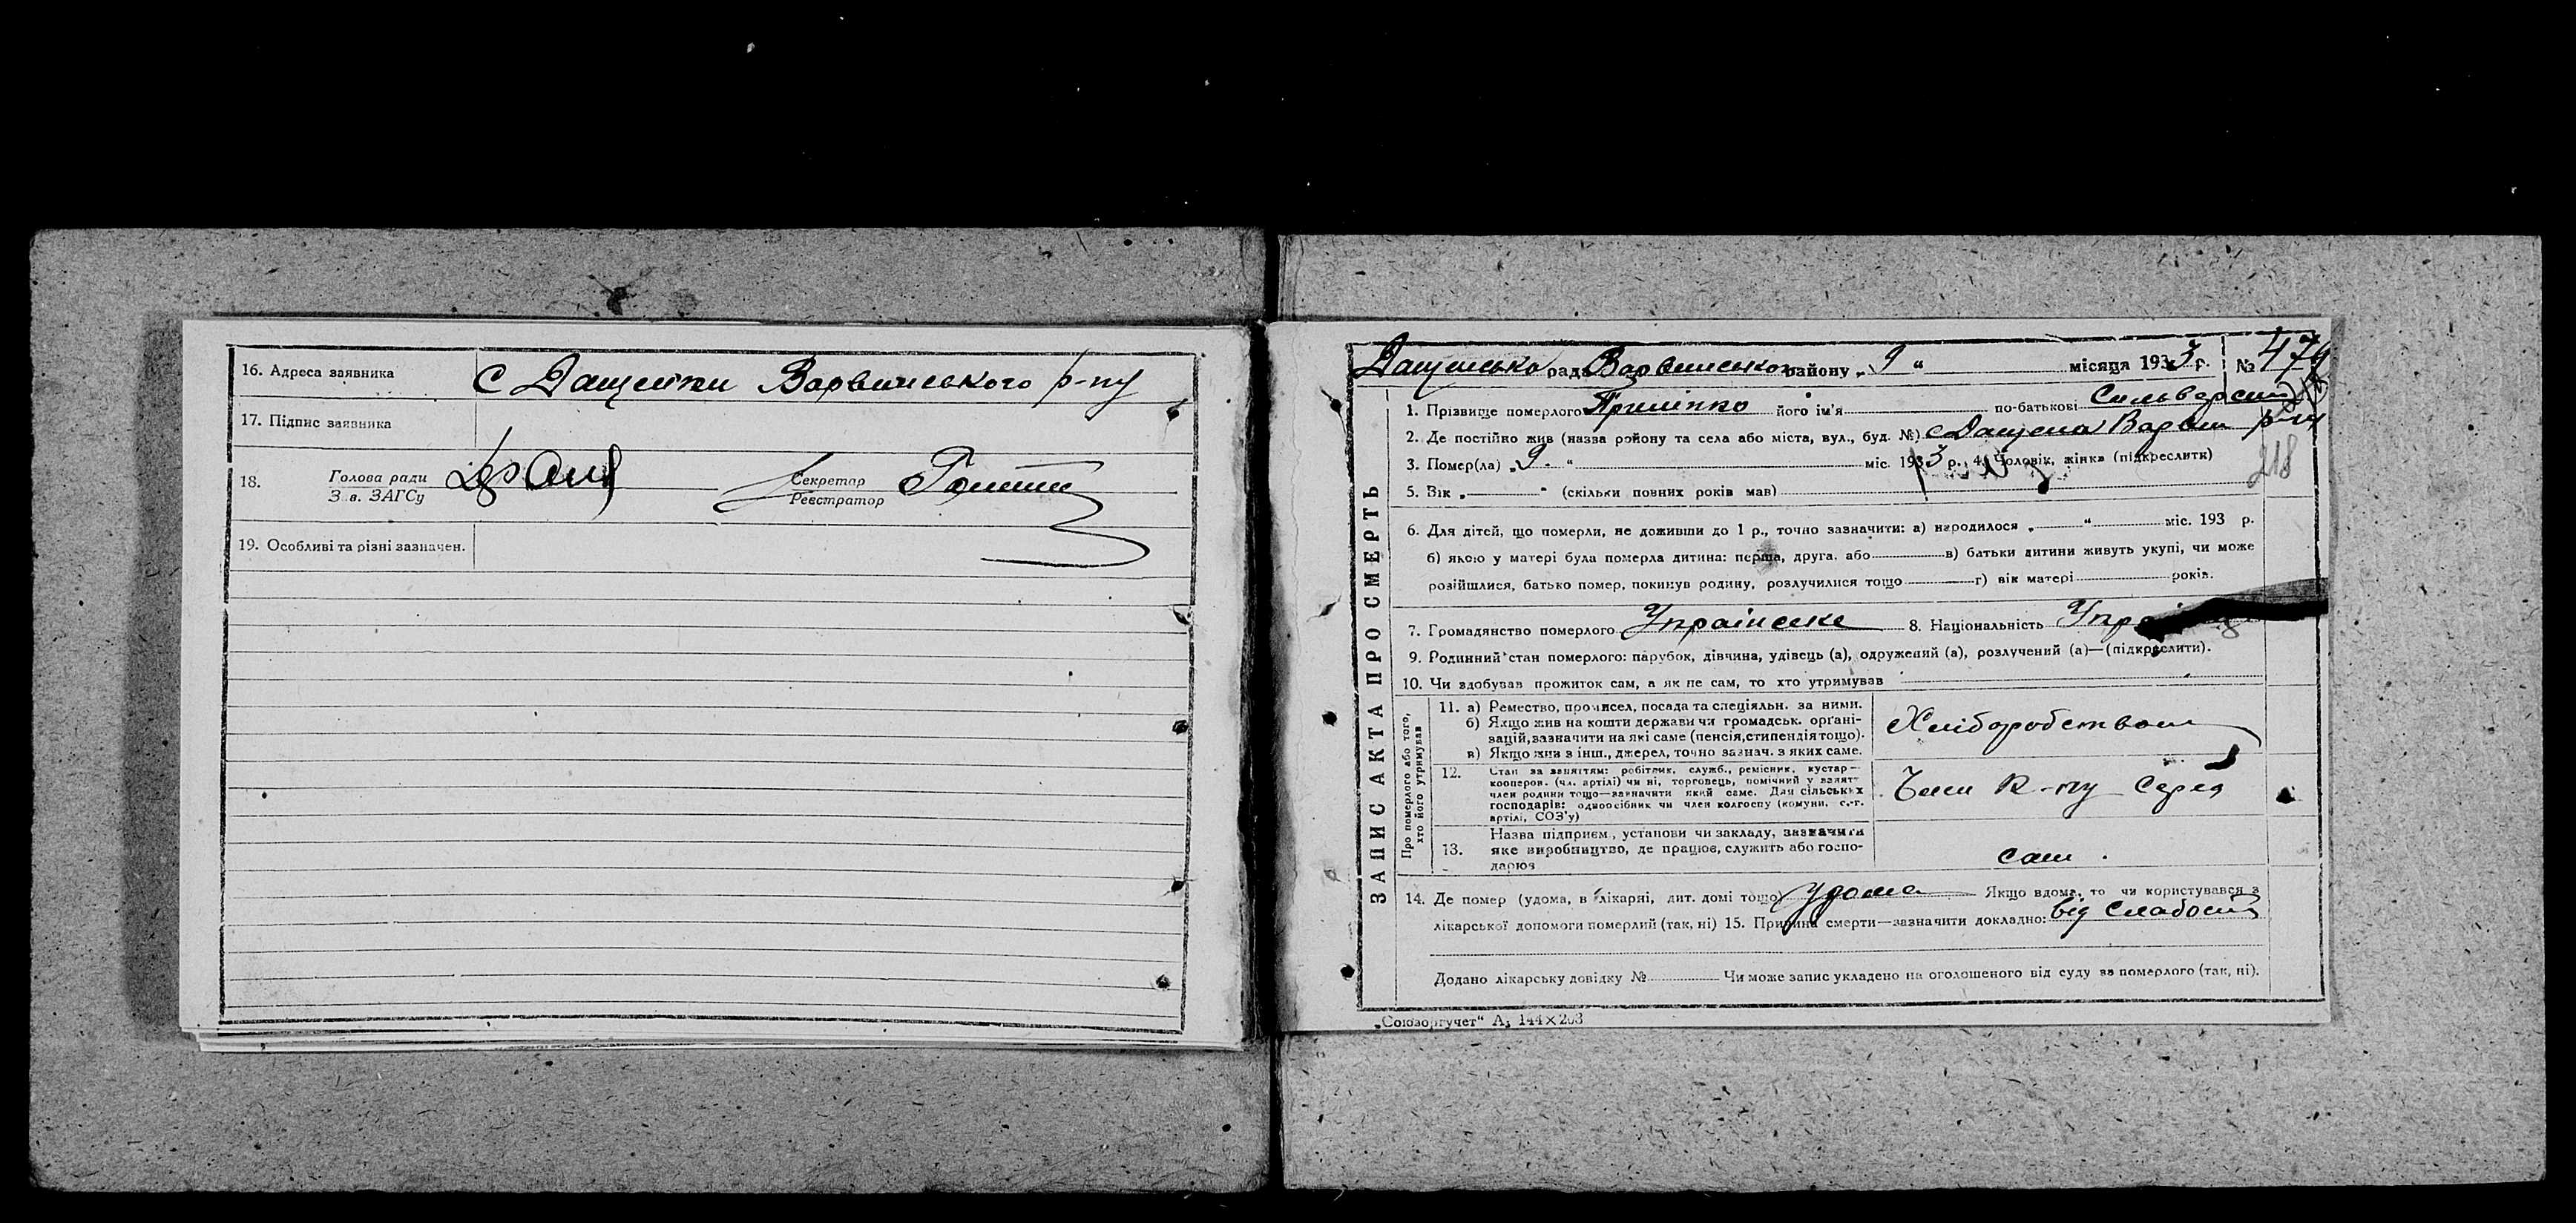 16. Адреса заявника С Дащенки Варвинського р-ну
17. Підпис заявника
18. Голова ради Секретар
Зав. ЗАГСу Реєстратор
19. Особливі та різні зазначен.
ЗАПИС АКТА ПРО СМЕРТЬ
Дащенсько рада Варвинсько району „9“ місяця 1933 р. № 479
1. Прізвище померлого Приліпко його ім'я по-батькові
2. Де постійно жив (назва району та села або міста, вул., буд. №) с Дащенки Варвин р-ну
218
3. Помер(ла) „9.“ міс. 1933 р. 4. Чоловік, жінка (підкреслити)
5. Вік „ “ (скільки повних років мав)
6. Для дітей, що померли, не доживши до 1 р., точно зазначити: а) народилося „ “ міс. 193 р.
б) якою у матері була померла дитина: перша, друга, або в) батьки дитини живуть укупі, чи може
розійшлися, батько помер, покинув родину, розлучилися тощо г) вік матері років.
7. Громадянство померлого Українське 8. Національність
9. Родинний стан померлого: парубок, дівчина, удівець (а), одружений (а), розлучений (а)—(підкреслити).
10. Чи здобував прожиток сам, а як не сам, то хто утримував
Про померлого або того, хто його утримував
11. а) Ремество, промисел, посада та спеціяльн. за ними.
б) Якщо жив на кошти держави чи громадськ. органі-
зацій, зазначити на які саме (пенсія, стипендія тощо).
в) Якщо жив з інш., джерел, точно зазнач. з яких саме.
Хліборобством
12. Стан за заняттям: робітник, служб., ремісник, кустар—
кооперов. (чл. артілі) чи ні, торговець, помічний у занят-
член родини тощо—зазначити який саме. Для сільських
господарів: одноосібник чи член колгоспу (комуни, с.-г.
артілі, СОЗ'у)
Член К-пу Серед
13. Назва підприєм., установи чи закладу, зазначити
яке виробництво, де працює, служить або госпо-
дарює
сам.
14. Де помер (удома, в лікарні, дит. домі тощо) удома Якщо вдома, то чи користувався з
лікарської допомоги померлий (так, ні) 15. Причина смерти—зазначити докладно: від слабости
Додано лікарську довідку № Чи може запис укладено на оголошеного від суду за померлого (так, ні).
„Союзоргучет“ А₅ 144×203